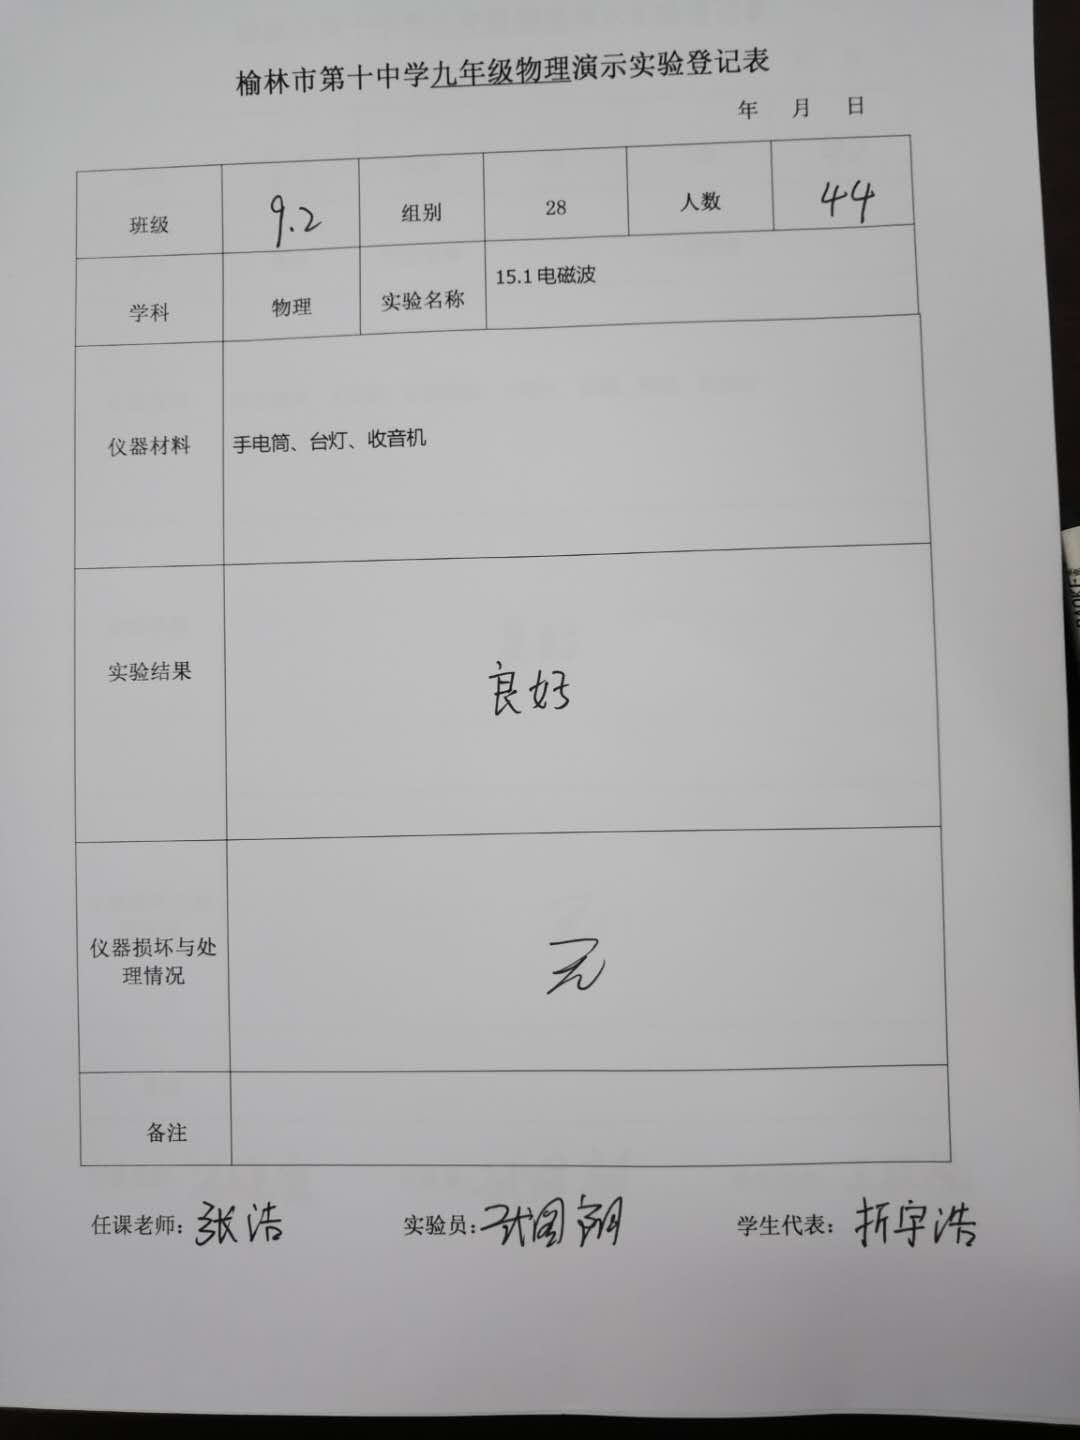 榆林市第十中学九年级物理演示实验登记表
年 月 日
班级 9.2 组别 28 人数 44
学科 物理 实验名称 15.1电磁波
仪器材料 手电筒、台灯、收音机
实验结果 良好
仪器损坏与处
理情况 无
备注
任课老师：张浩 实验员： 学生代表：折宇浩